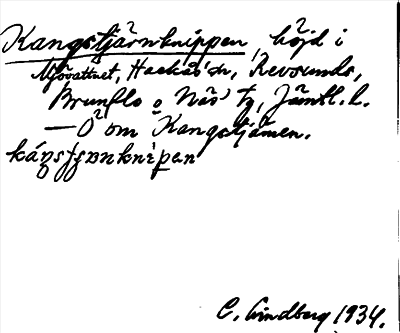 Kangstjärnknippen, höjd i
Mjövattnet, Hackås sn, Revsunds,
Brunflo o. Näs tg, Jämtl. l.
— Ö om Kangstjärnen.
C. Lindberg 1934.